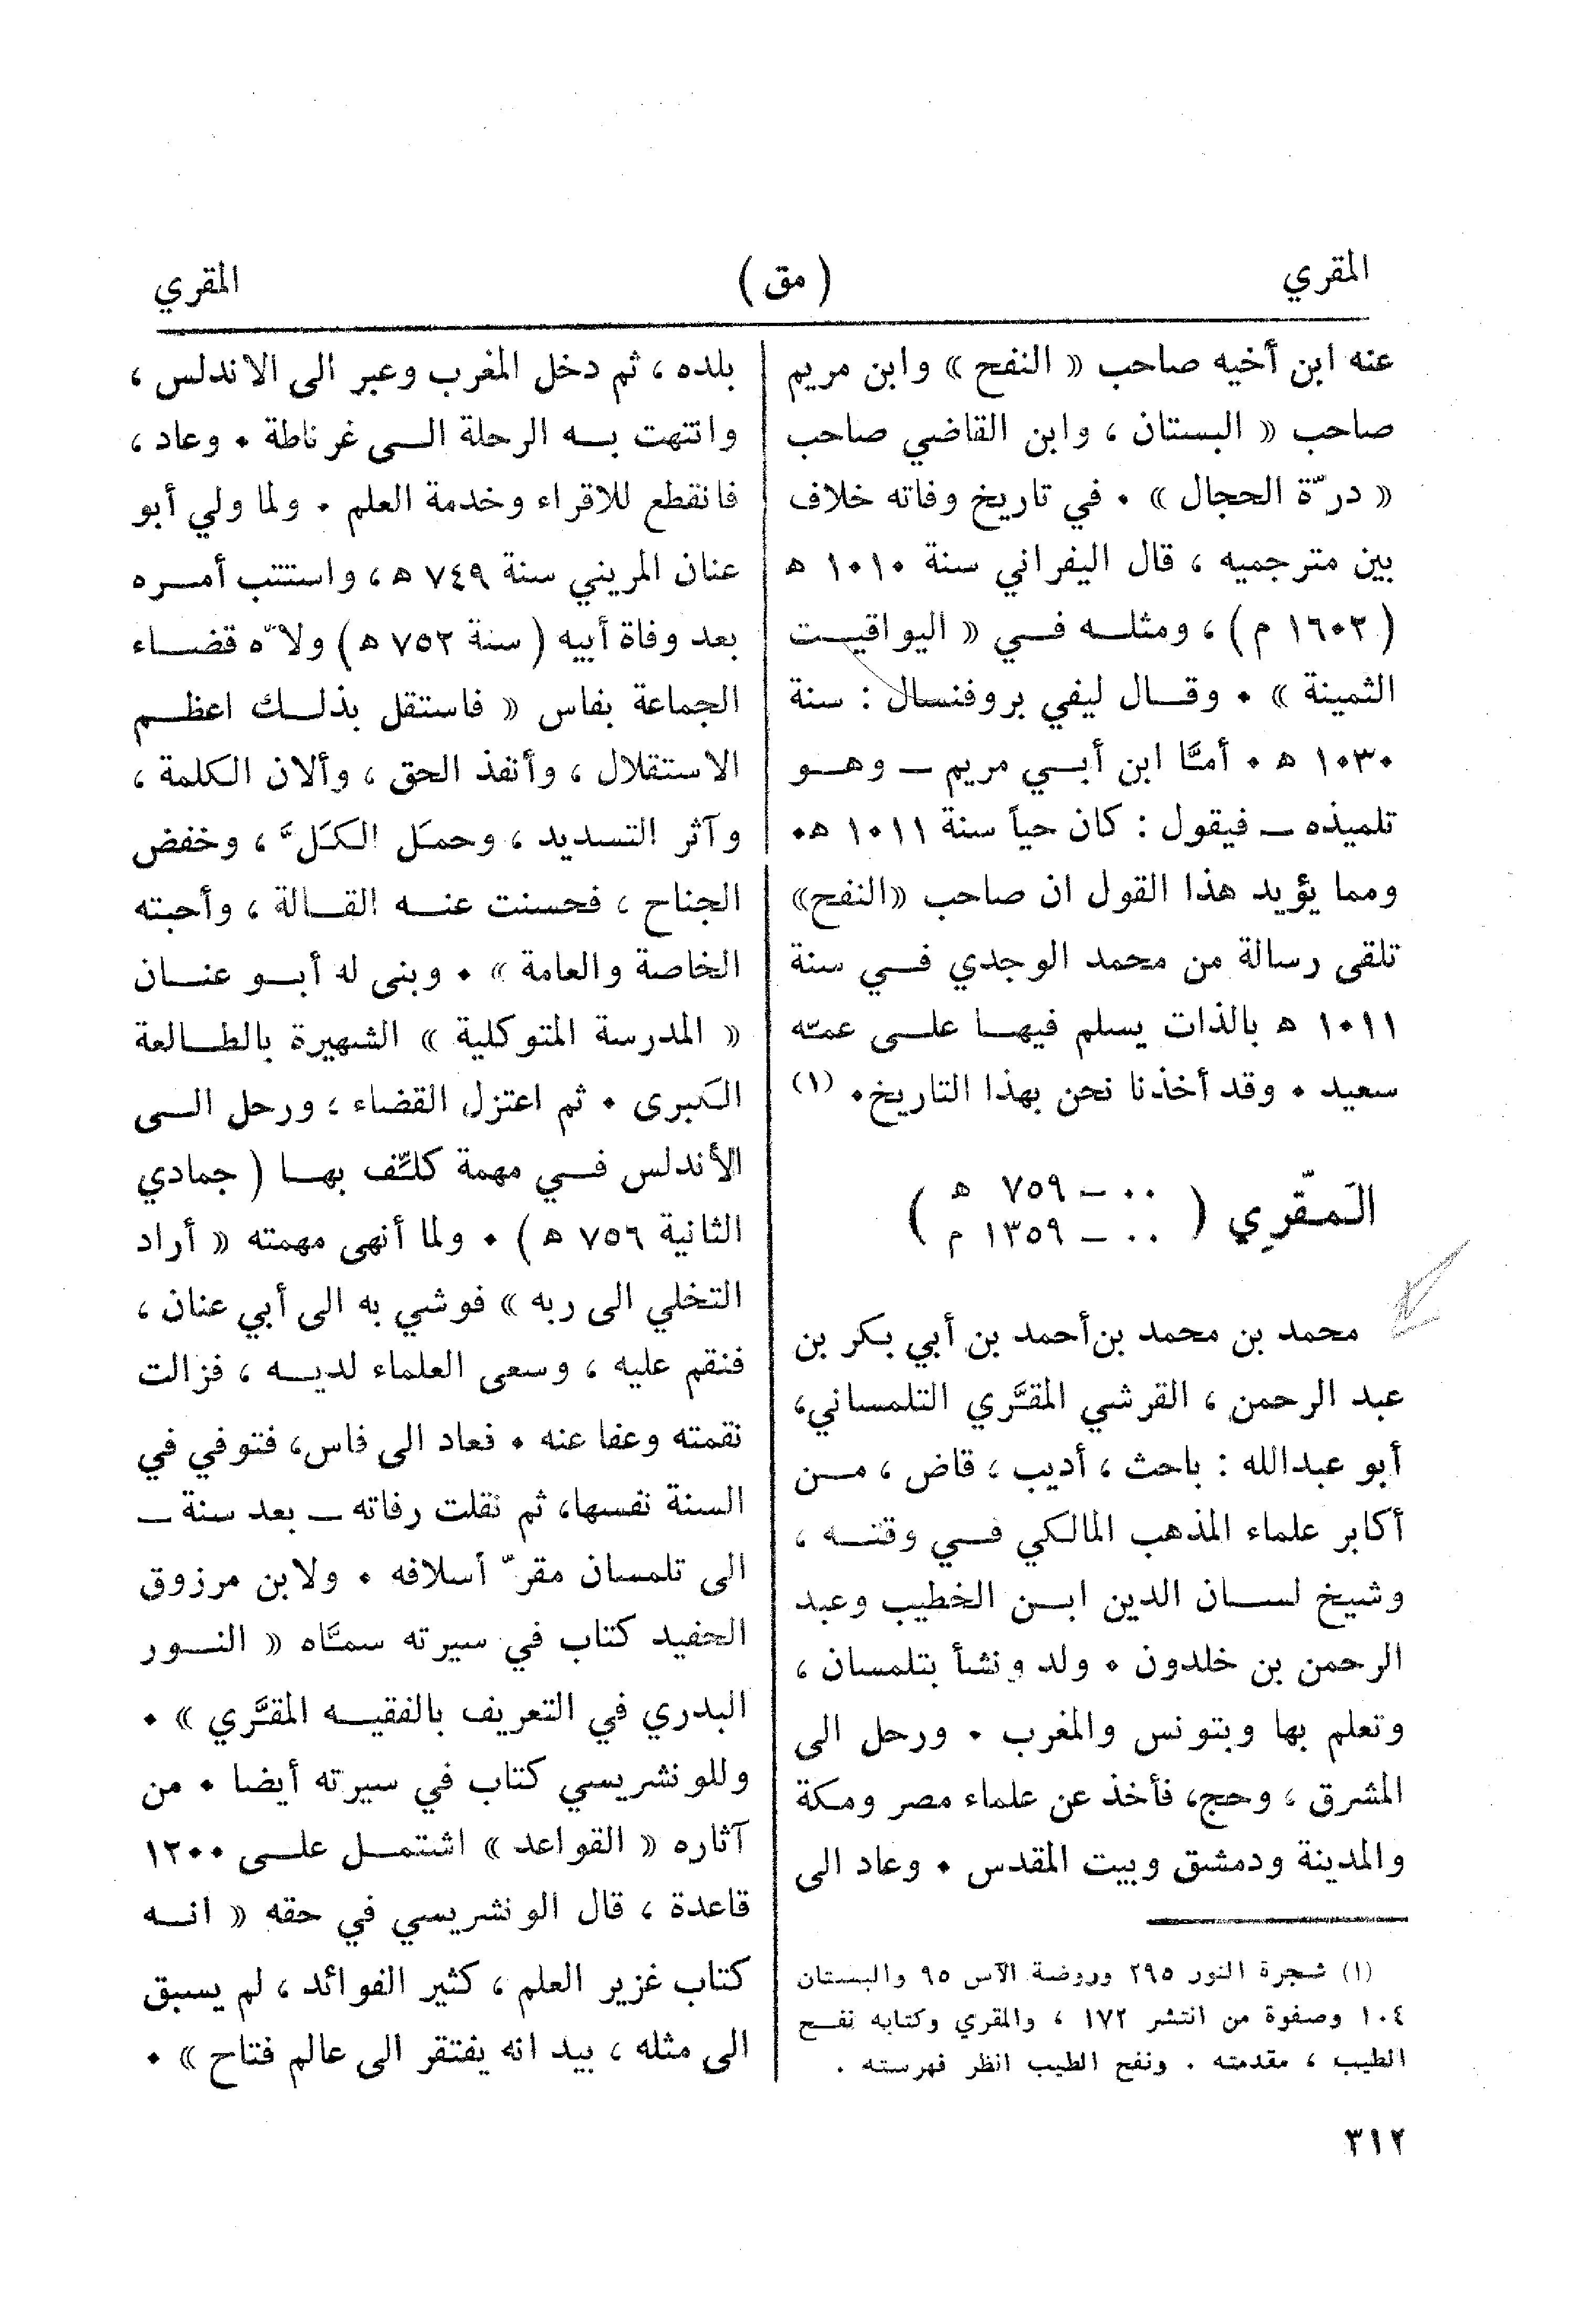 المقري
( مق )
المقري
عنه ابن أخيه صاحب « النفح » وابن مريم
صاحب « البستان ، وابن القاضي صاحب
« درّة الحجال » . في تاريخ وفاته خلاف
بين مترجميه ، قال اليفراني سنة ١٠١٠ هـ
( ١٦٠٢ م ) ، ومثله في « اليواقيت
الثمينة » . وقال ليفي بروفنسال : سنة
١٠٣٠ هـ . أمَّا ابن أبي مريم ـ وهو
تلميذه ـ فيقول : كان حياً سنة ١٠١١ هـ.
ومما يؤيد هذا القول ان صاحب «النفح»
تلقى رسالة من محمد الوجدي في سنة
١٠١١ هـ بالذات يسلم فيها على عمّه
سعيد . وقد أخذنا نحن بهذا التاريخ. (١)
المَقّرِي ( ٠٠ ـ ٧٥٩ هـ
٠٠ ـ ١٣٥٩ م )
محمد بن محمد بن أحمد بن أبي بكر بن
عبد الرحمن ، القرشي المقَّري التلمساني،
أبو عبدالله : باحث ، أديب ، قاض ، من
أكابر علماء المذهب المالكي في وقته ،
وشيخ لسان الدين ابن الخطيب وعبد
الرحمن بن خلدون . ولد ونشأ بتلمسان ،
وتعلم بها وبتونس والمغرب . ورحل الى
المشرق ، وحج، فأخذ عن علماء مصر ومكة
والمدينة ودمشق وبيت المقدس . وعاد الى
(١) شجرة النور ٢٩٥ وروضة الآس ٩٥ والبستان
١٠٤ وصفوة من انتشر ١٧٢ ، والمقري وكتابه نفح
الطيب ، مقدمته . ونفح الطيب انظر فهرسته .
بلده ، ثم دخل المغرب وعبر الى الاندلس ،
وانتهت به الرحلة الى غرناطة . وعاد ،
فانقطع للاقراء وخدمة العلم . ولما ولي أبو
عنان المريني سنة ٧٤٩ هـ ، واستتب أمره
بعد وفاة أبيه ( سنة ٧٥٢ هـ ) ولاّه قضاء
الجماعة بفاس « فاستقل بذلك اعظم
الاستقلال ، وأنفذ الحق ، وألان الكلمة ،
وآثر التسديد ، وحمَل الكَلَّ ، وخفض
الجناح ، فحسنت عنه القالة ، وأحبته
الخاصة والعامة » . وبنى له أبو عنان
« المدرسة المتوكلية » الشهيرة بالطالعة
الكبرى . ثم اعتزل القضاء ، ورحل الى
الأندلس في مهمة كلِّف بها ( جمادي
الثانية ٧٥٦ هـ ) . ولما أنهى مهمته « أراد
التخلي الى ربه » فوشي به الى أبي عنان ،
فنقم عليه ، وسعى العلماء لديه ، فزالت
نقمته وعفا عنه . فعاد الى فاس، فتوفي في
السنة نفسها، ثم نقلت رفاته ـ بعد سنة ـ
الى تلمسان مقرّ أسلافه . ولابن مرزوق
الحفيد كتاب في سيرته سمَّاه « النور
البدري في التعريف بالفقيه المقَّري » .
وللونشريسي كتاب في سيرته أيضا . من
آثاره « القواعد » اشتمل على ١٢٠٠
قاعدة ، قال الونشريسي في حقه « انه
كتاب غزير العلم ، كثير الفوائد ، لم يسبق
الى مثله ، بيد انه يفتقر الى عالم فتاح » .
٣١٢